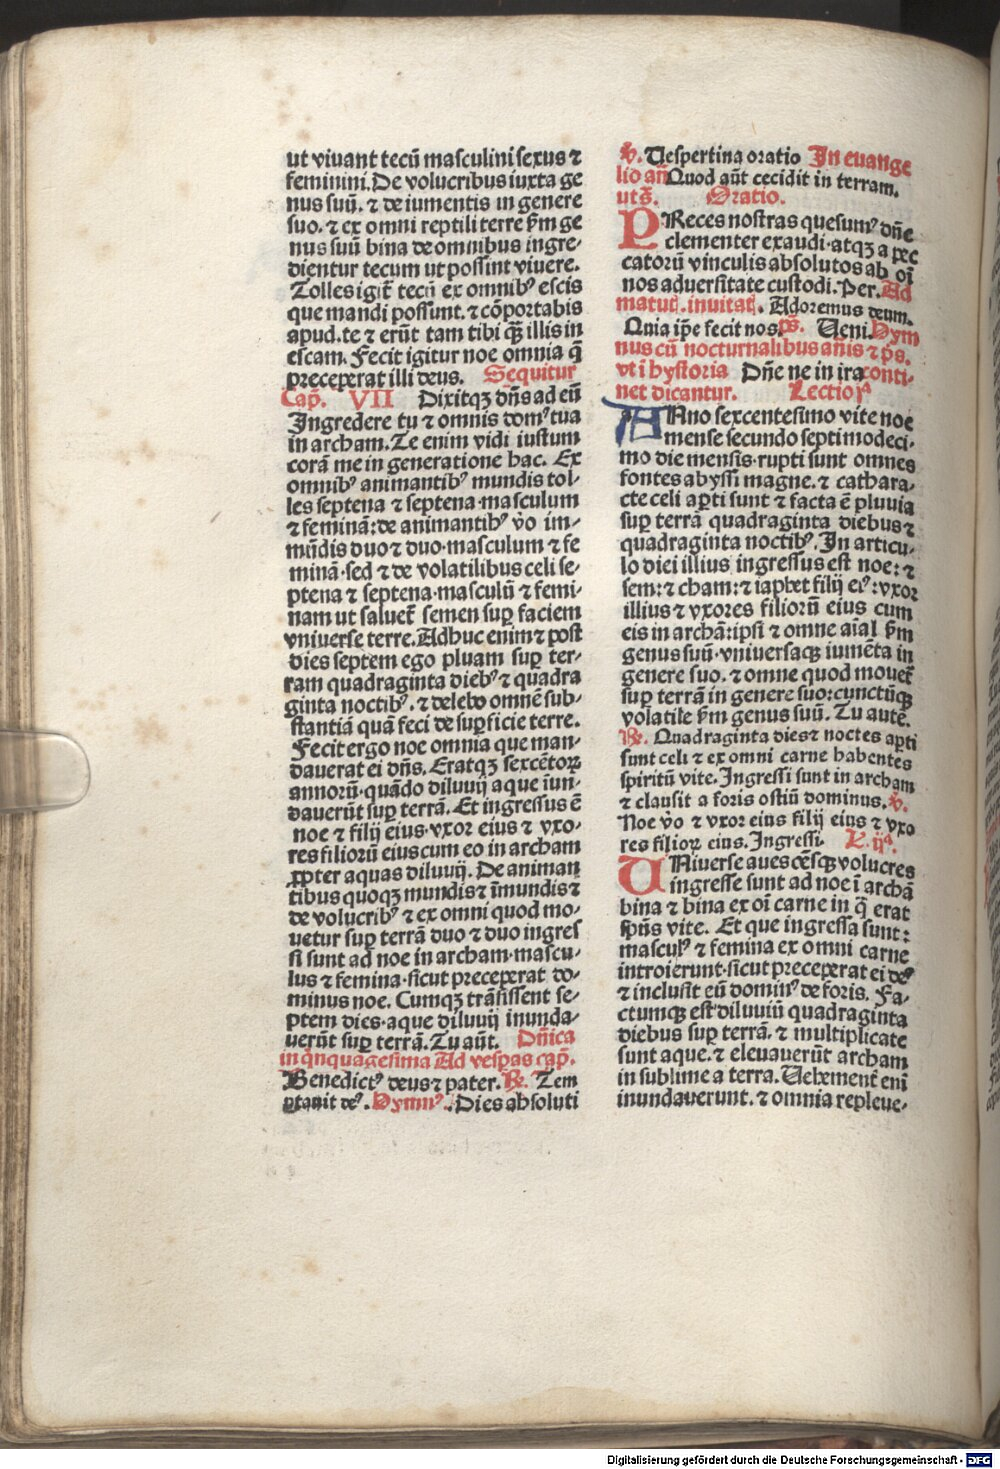 ut viuant tecū masculini sexus ⁊
feminini. De volucribus iuxta ge
nus suū. ⁊ de iumentis in genere
suo. ⁊ ex omni reptili terre ẜm ge
nus suū bina de omnibus ingre⸗
dientur tecum ut possint viuere.
Tolles igit̄ tecū ex omnibꝰ escis
que mandi possunt. ⁊ cōportabis
apud te ⁊ erūt tam tibi q̄ȝ illis in
escam. Fecit igitur noe omnia q̄
preceperat illi deus. Sequitur
Cap̄. VII Dixitqȝ dn̄s ad eū
Ingredere tu ⁊ omnis domꝰ tua
in archam. Te enim vidi iustum
corā me in generatione hac. Ex
omnibꝰ animantibꝰ mundis tol⸗
les septena ⁊ septena·masculum
⁊ feminā: de animantibꝰ v̄o im⸗
mūdis duo ⁊ duo·masculum ⁊ fe
minā·sed ⁊ de volatilibus celi se⸗
ptena ⁊ septena·masculū ⁊ femi⸗
nam ut saluet̄ semen suꝑ faciem
vniuerse terre. Adhuc enim ⁊ post
dies septem ego pluam suꝑ ter⸗
ram quadraginta diebꝰ ⁊ quadra
ginta noctibꝰ. ⁊ delebo omnē sub⸗
stantiā quā feci de suꝑficie terre.
Fecit ergo noe omnia que man⸗
dauerat ei dn̄s. Eratqȝ sexcētoꝝ
annorū·quādo diluuij aque inun⸗
dauerūt suꝑ terrā. Et ingressus ē
noe ⁊ filij eius·vxor eius ⁊ vxo⸗
res filiorū eius cum eo in archam
ꝓpter aquas diluuij. De animan
tibus quoqȝ mundis ⁊ īmundis ⁊
de volucribꝰ ⁊ ex omni quod mo⸗
uetur suꝑ terrā duo ⁊ duo ingres
si sunt ad noe in archam·mascu⸗
lus ⁊ femina·sicut preceperat do⸗
minus noe. Cumqȝ trāsissent se⸗
ptem dies·aque diluuij inunda⸗
uerūt suꝑ terrā. Tu aūt. Dn̄ica
in q̄nquagesima Ad vesꝑas cap̄.
Benedictꝰ deus ⁊ pater. ℞. Tem
ptauit deꝰ. Hymnꝰ. Dies absoluti
℣. Vespertina oratio In euange
lio an̄ Quod aūt cecidit in terram.
ut s̄. Oratio.
PReces nostras quesumꝰ dn̄e
clementer exaudi·atqȝ a pec
catorū vinculis absolutos ab oī
nos aduersitate custodi. Per. Ad
matut̄. inuitat̄. Adoremus deum.
Quia ip̄e fecit nos. ps̄. Ueni. Hym
nus cū nocturnalibus an̄is ⁊ ps̄.
vt ī hystoria Dn̄e ne in ira conti⸗
net dicantur. Lectio jᵃ
ANno sexcentesimo vite noe
mense secundo septimodeci⸗
mo die mensis·rupti sunt omnes
fontes abyssi magne. ⁊ cathara⸗
cte celi aꝑti sunt ⁊ facta ē pluuia
suꝑ terrā quadraginta diebus ⁊
quadraginta noctibꝰ. In articu⸗
lo diei illius ingressus est noe: ⁊
sem: ⁊ cham: ⁊ iaphet filij eiꝰ: vxor
illius ⁊ vxores filiorū eius cum
eis in archā: ipsi ⁊ omne aīal ẜm
genus suū·vniuersaqȝ iumēta in
genere suo. ⁊ omne quod mouet̄
suꝑ terrā in genere suo: cunctūqȝ
volatile ẜm genus suū. Tu autē.
℞. Quadraginta dies ⁊ noctes aꝑti
sunt celi ⁊ ex omni carne habentes
spiritū vite. Ingressi sunt in archam
⁊ clausit a foris ostiū dominus. ℣.
Noe v̄o ⁊ vxor eius filij eius ⁊ vxo
res filioꝝ eius. Ingressi. L. ijᵃ.
UNiuerse aues oēsqȝ volucres
ingresse sunt ad noe ī archā
bina ⁊ bina ex oī carne in q̄ erat
sp̄ūs vite. Et que ingressa sunt:
masculꝰ ⁊ femina ex omni carne
introierunt·sicut preceperat ei deꝰ
⁊ inclusit eū dominꝰ de foris. Fa⸗
ctumqȝ est diluuiū quadraginta
diebus suꝑ terrā. ⁊ multiplicate
sunt aque. ⁊ eleuauerūt archam
in sublime a terra. Uehement̄ enī
inundauerunt. ⁊ omnia repleue⸗
Digitalisierung gefördert durch die Deutsche Forschungsgemeinschaft - DFG